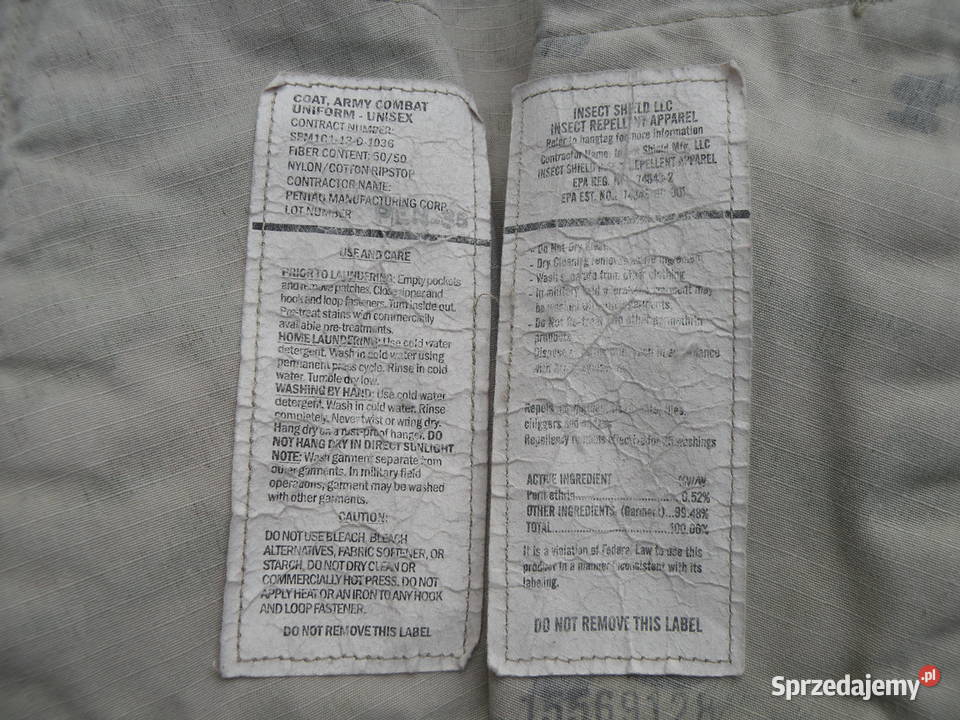 COAT, ARMY COMBAT
UNIFORM - UNISEX
CONTRACT NUMBER:
SPM1C1-13-D-1036
FIBER CONTENT: 50/50
NYLON/COTTON RIPSTOP
CONTRACTOR NAME:
PENTAQ MANUFACTURING CORP.
LOT NUMBER
USE AND CARE
PRIOR TO LAUNDERING: Empty pockets
and remove patches. Close zipper and
hook and loop fasteners. Turn inside out.
Pre-treat stains with commercially
available pre-treatments.
HOME LAUNDERING: Use cold water
detergent. Wash in cold water using
permanent press cycle. Rinse in cold
water. Tumble dry low.
WASHING BY HAND: Use cold water
detergent. Wash in cold water. Rinse
completely. Never twist or wring dry.
Hang dry on a rust-proof hanger. DO
NOT HANG DRY IN DIRECT SUNLIGHT
NOTE: Wash garment separate from
other garments. In military field
operations, garment may be washed
with other garments.
CAUTION:
DO NOT USE BLEACH, BLEACH
ALTERNATIVES, FABRIC SOFTENER, OR
STARCH. DO NOT DRY CLEAN OR
COMMERCIALLY HOT PRESS. DO NOT
APPLY HEAT OR AN IRON TO ANY HOOK
AND LOOP FASTENER.
DO NOT REMOVE THIS LABEL
INSECT SHIELD LLC
INSECT REPELLENT APPAREL
Refer to hangtag for more information
Contractor Name: Shield Mfg. LLC
INSECT SHIELD REPELLENT APPAREL
EPA REG. 74843-2
EPA EST. NO.: 001
- Do Not Dry Clean
- Dry Cleaning removes active ingredient
- Wash separate from other clothing
- In military field garment may
be
- Do Not Re-treat other permethrin
products
- Dispose in accordance
with
Repels flies,
chiggers and
Repellency washings
ACTIVE INGREDIENT W/W
Permethrin 0.52%
OTHER INGREDIENTS (Garment) 99.48%
TOTAL 100.00%
It is a violation of Federal Law to use this
product in a manner inconsistent with its
labeling.
DO NOT REMOVE THIS LABEL
Sprzedajemy.pl